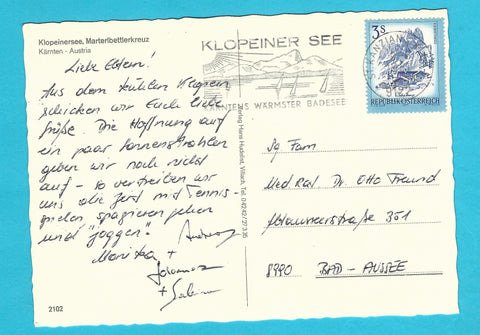 Klopeinersee, Marterlbettlerkreuz
Kärnten - Austria
Liebe Eltern!
Aus dem kühlen Klopein
schicken wir Euch liebe
Grüße. Die Hoffnung auf
ein paar Sonnenstrahlen
geben wir noch nicht
auf - so vertreiben wir
uns die Zeit mit Tennis-
spielen, spazieren gehen
und "joggen".
Andreas
Monika +
Johannes
+ Sabine
2102
Verlag Hans Huderlist, Villach, Tel. 04242/27
KLOPEINER SEE
KÄRNTENS WÄRMSTER BADESEE
ST. KANZIAN
9122
3S
REPUBLIK ÖSTERREICH
Fam
Med Rat Dr. Otto Freund
351
8990 BAD-AUSSEE